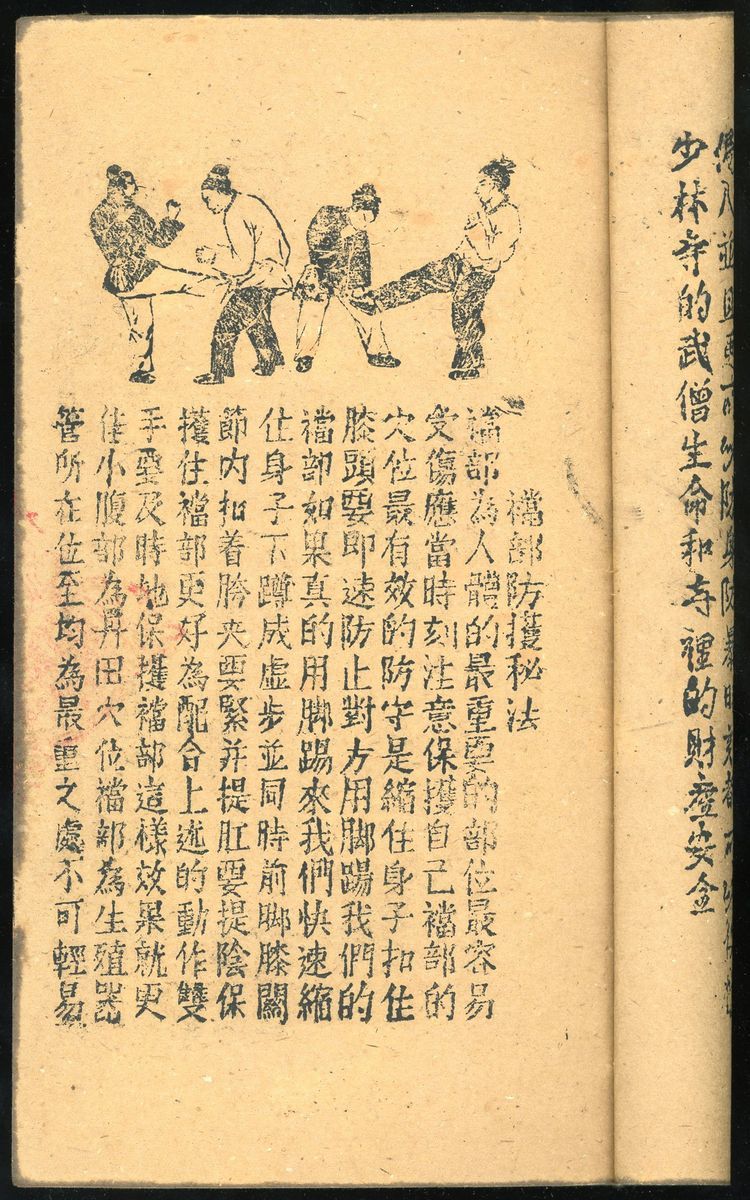 並且更可以防身防暴時刻都可以
少林寺的武僧生命和寺裡的財產安全
襠部防擭秘法
襠部為人體的最重要的部位最容易
受傷應當時刻注意保擭自己襠部的
穴位最有效的防守是縮住身子扣住
膝頭要即速防止對方用脚踢我們的
襠部如果真的用脚踢來我們快速縮
住身子下蹲成虚步並同時前脚膝關
節内扣着胯夾要緊并提肛要提陰保
擭住襠部更好為配合上述的動作雙
手要及時地保擭襠部這樣效果就更
佳小腹部為丹田穴位襠部為生殖器
管所在位至均為最重之處不可輕易